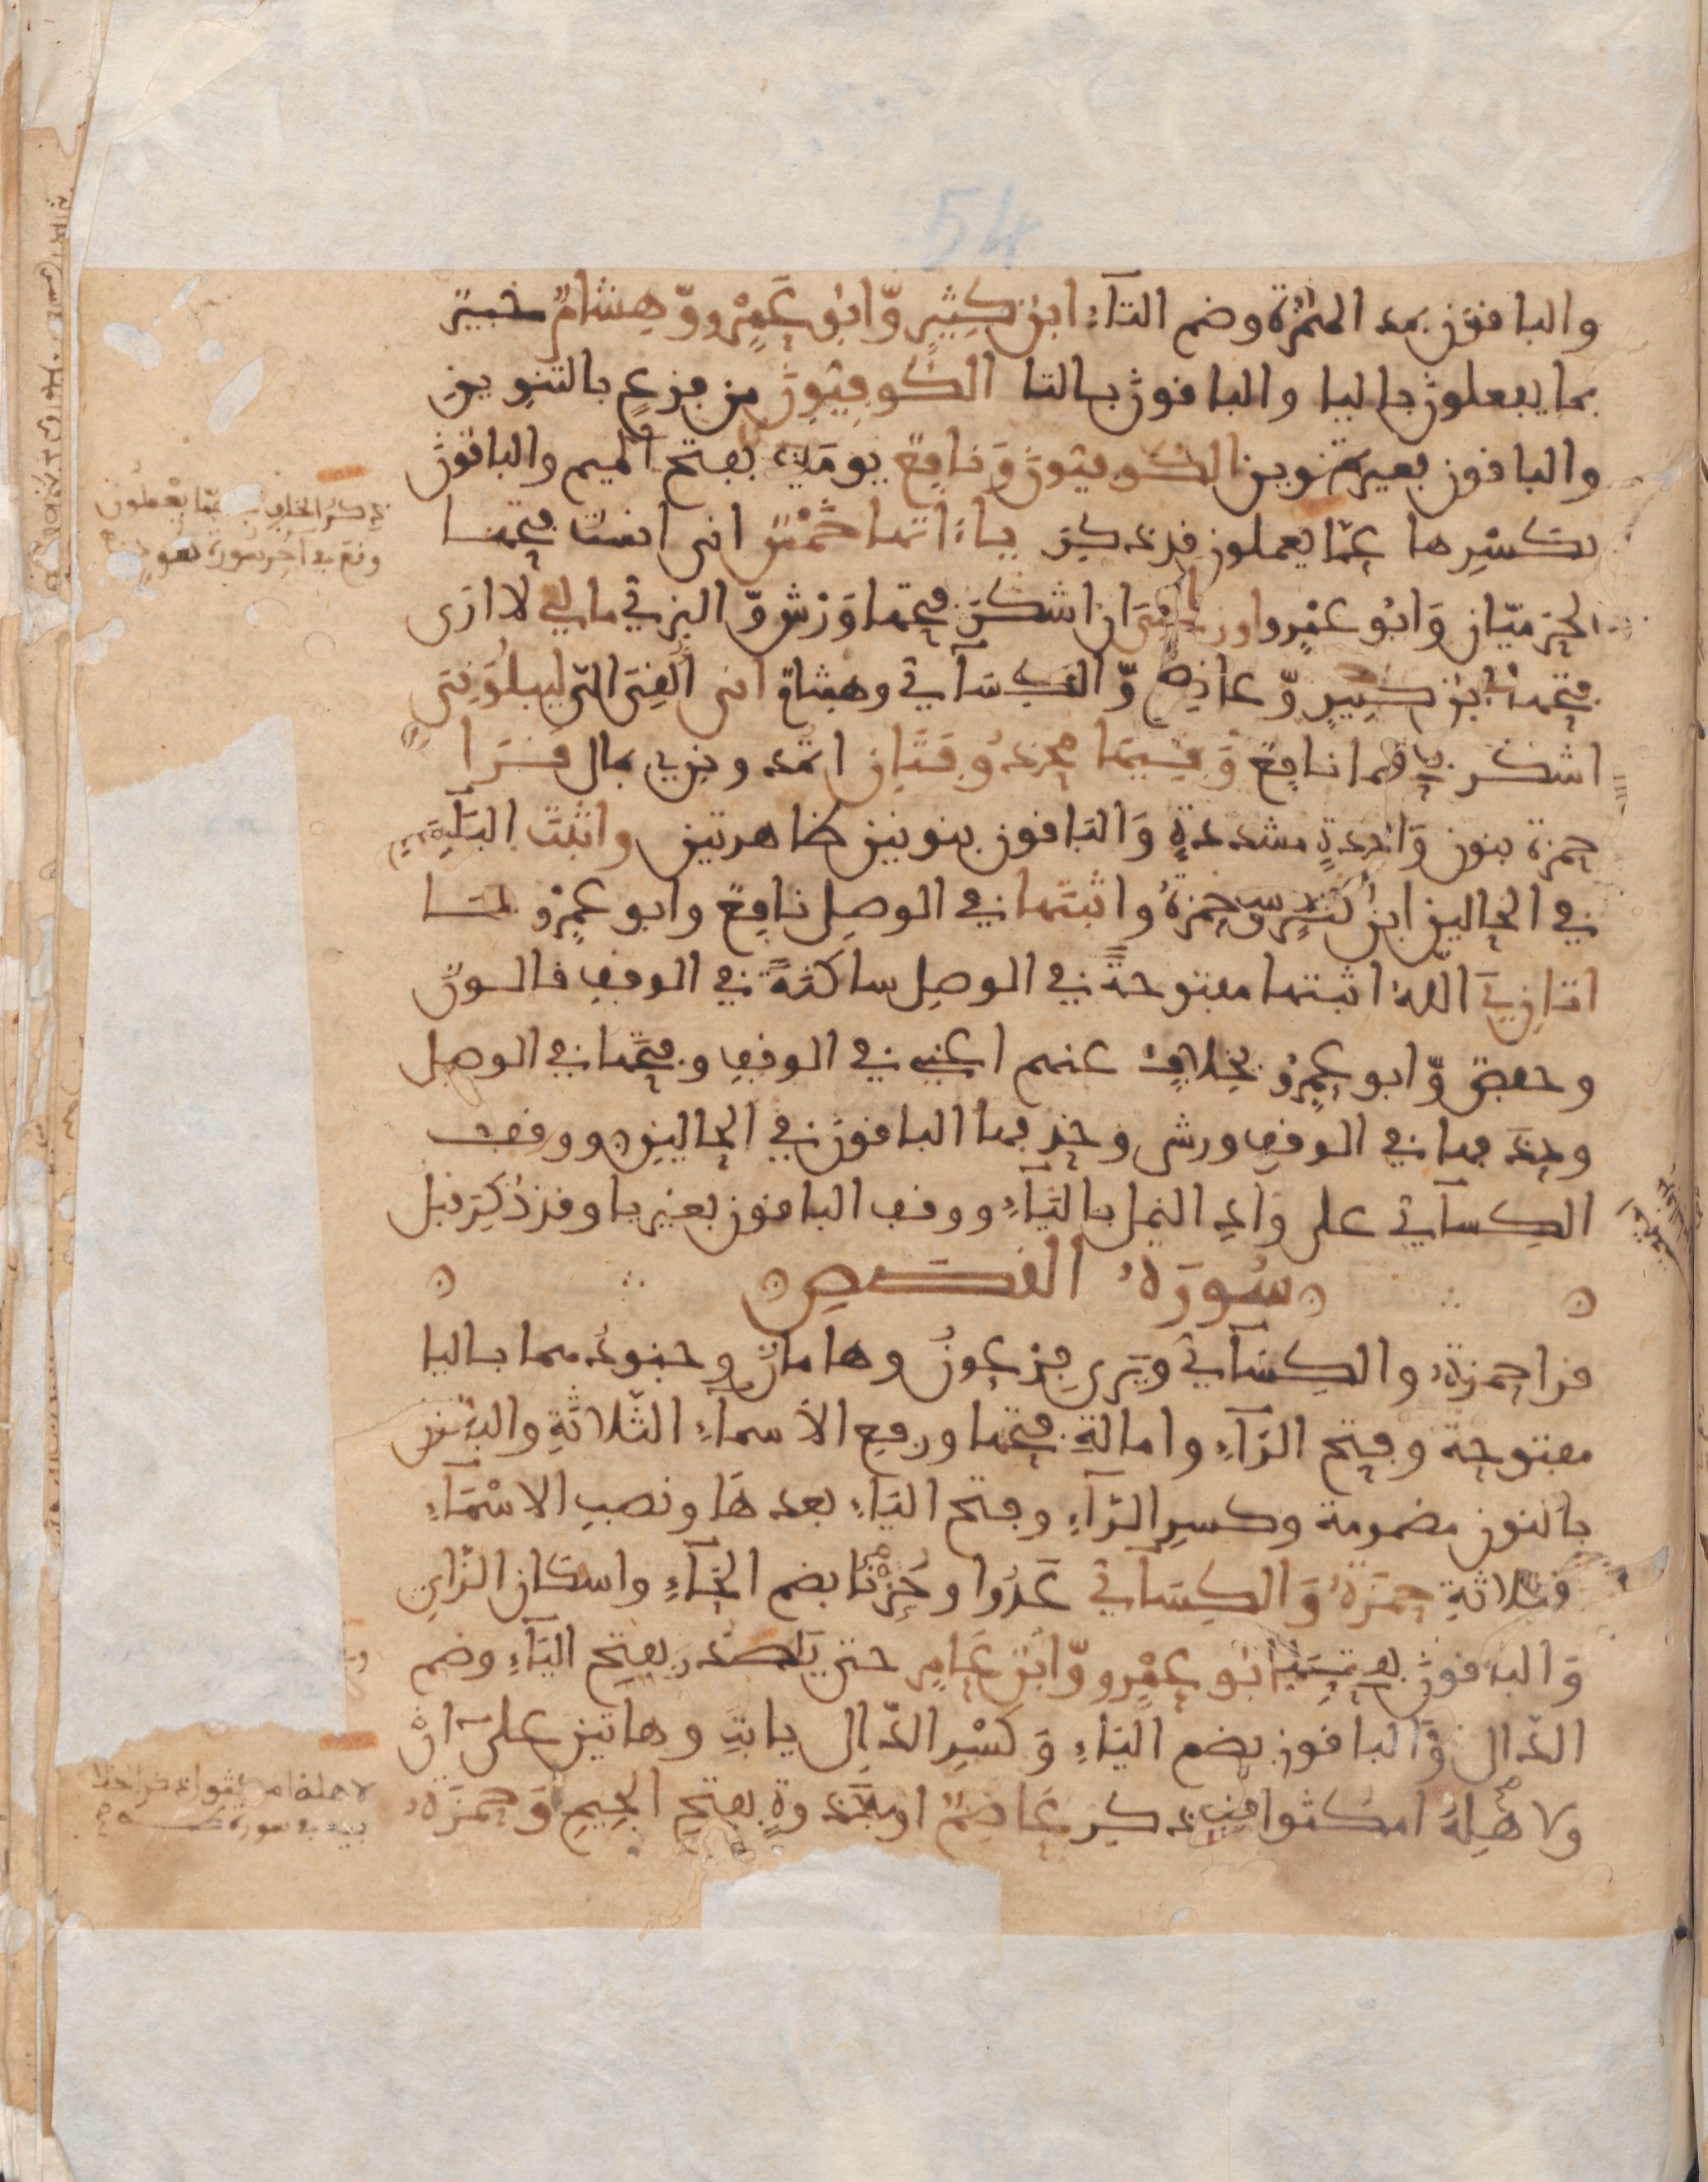 54
والباقون بمد الهمزة وضم التآء ابن كثير وّابو عمرو وّهشام خبير
بما يفعلون باليا والباقون بالتا الكوفيون من فزع بالتنوين
والباقون بغير تنوين الكوفيون ونافع يومئذ بفتح الميم والباقون
بكسرها عمّا يعملون قد ذكر ياءاتها خمس انى انست فتحها
ذكر الخلاف عمّا يعملون
وقع في اخر سورة هود
الحرميّان وَابو عمرو اوزعنى ان اشكر فتحها ورش وّالبزي مالي لا ارى
فتحها ابن كثير وّعاصم وّالكسآئي وهشام انى ألقى التى ليبلونى
اشكر فتحها نافع وفيها محذوفتان اتمدونن بمال قرا
حمزة بنون واحدة مشددة وَالباقون بنونين ظاهرتين واثبت اليآء
في الحالين ابن كثير وحمزة واثبتها في الوصل نافع وابو عمرو فما
اتاني الله اثبتها مفتوحة في الوصل ساكنة في الوقف قالون
وحفص وّابو عمرو بخلاف عنهم اعني في الوقف وفتحها في الوصل
وحذفها في الوقف ورش وحذفها الباقون في الحالين ووقف
الكسآئي على واد النمل باليآء ووقف الباقون بغير يا وقد ذكر قبل
سورة القصص
قرا حمزة والكسآئي ويرى فرعون وهامان وجنودهما باليا
مفتوحة وفتح الرآء وامالة فتحها ورفع الأسماء الثلاثة والباقون
بالنون مضمومة وكسر الرآء وفتح اليآء بعدها ونصب الاسمآء
الثلاثة حمزة وَالكسآئي عدوا وحزنا بضم الحآء واسكان الزاي
وَالباقون بفتحهما ابو عمرو وّابن عامر حتى يصدر بفتح اليآء وضم
الدال وَالباقون بضم اليآء وَكسر الدال يابت وهاتين على ان
ولاهله امكثوا قد ذكر عاصم او جذوة بفتح الجيم وَحمزة
لاهله امكثوا قد قرا حمزة
في سورة طه